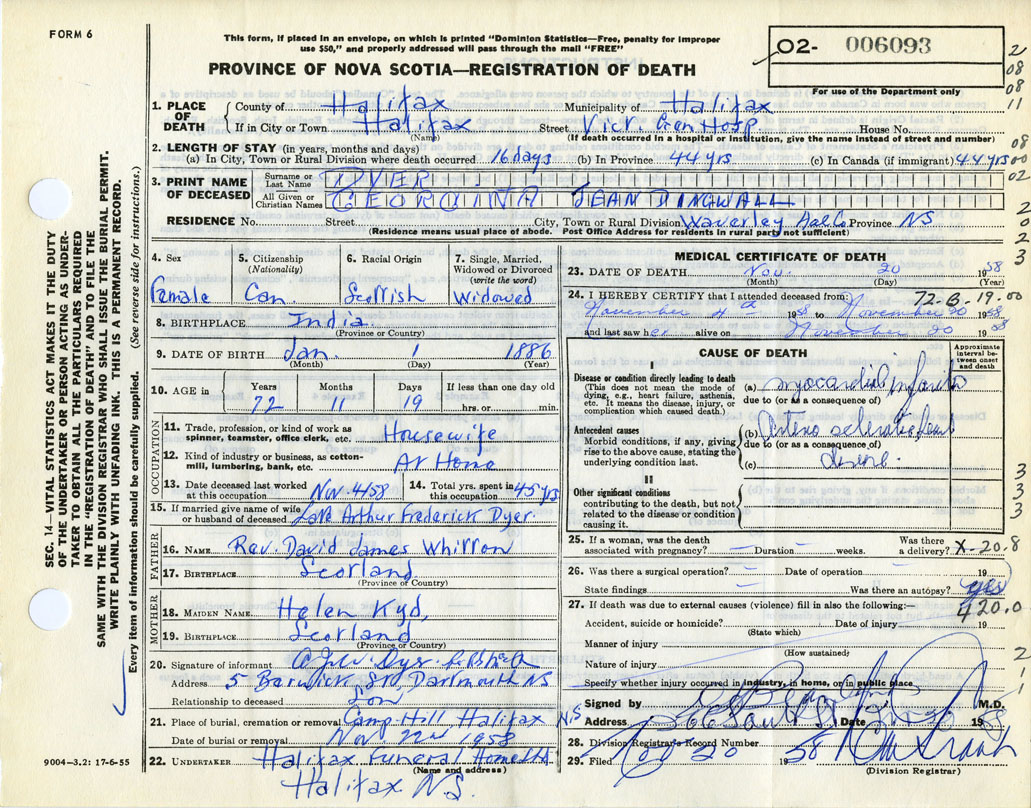 FORM 6
This form, if placed in an envelope, on which is printed "Dominion Statistics—Free, penalty for improper
use $50," and properly addressed will pass through the mail "FREE"
PROVINCE OF NOVA SCOTIA—REGISTRATION OF DEATH
02- 006093
For use of the Department only
2
08
08
11
08
00
02
2
0
2
3
1. PLACE OF DEATH
County of Halifax Municipality of Halifax
If in City or Town Halifax Street Vict. Gen Hosp. House No.
(Name) (If death occurred in a hospital or institution, give the name instead of street and number)
2. LENGTH OF STAY (in years, months and days)
(a) In City, Town or Rural Division where death occurred 16 days (b) In Province 44 yrs (c) In Canada (if immigrant) 44 yrs
3. PRINT NAME OF DECEASED
Surname or Last Name DYER
All Given or Christian Names GEORGINA JEAN DINGWALL
RESIDENCE No. Street City, Town or Rural Division Waverley Province NS
(Residence means usual place of abode. Post Office Address for residents in rural parts not sufficient)
4. Sex
Female
5. Citizenship
(Nationality)
Can
6. Racial Origin
Scottish
7. Single, Married,
Widowed or Divorced
(write the word)
Widowed
8. BIRTHPLACE India
(Province or Country)
9. DATE OF BIRTH Jan. 1 1886
(Month) (Day) (Year)
10. AGE in
Years Months Days If less than one day old
72 11 19 hrs. or min.
OCCUPATION
11. Trade, profession, or kind of work as
spinner, teamster, office clerk, etc. Housewife
12. Kind of industry or business, as cotton-
mill, lumbering, bank, etc. At Home
13. Date deceased last worked
at this occupation Nov. 4/58
14. Total yrs. spent in
this occupation 45 yrs
15. If married give name of wife
or husband of deceased Late Arthur Frederick Dyer.
FATHER
16. NAME Rev. David James Whitton
17. BIRTHPLACE Scotland
(Province or Country)
MOTHER
18. MAIDEN NAME Helen Kyd,
19. BIRTHPLACE Scotland
(Province or Country)
20. Signature of informant Dyer
Address 5 St, Dartmouth NS
Relationship to deceased Son
21. Place of burial, cremation or removal Camp Hill, Halifax N.S.
Date of burial or removal Nov 22nd 1958
22. UNDERTAKER Halifax Funeral Home
(Name and address)
Halifax N.S.
MEDICAL CERTIFICATE OF DEATH
23. DATE OF DEATH Nov. 20 1958
(Month) (Day) (Year)
24. I HEREBY CERTIFY that I attended deceased from: 72-B-19-00
November 4th 1958 to November 20 1958
and last saw her alive on November 20 1958
CAUSE OF DEATH
Approximate
interval be-
tween onset
and death
I
Disease or condition directly leading to death
(This does not mean the mode of
dying, e.g., heart failure, asthenia,
etc. It means the disease, injury, or
complication which caused death.)
(a) myocardial infarct
due to (or as a consequence of)
Antecedent causes
Morbid conditions, if any, giving
rise to the above cause, stating the
underlying condition last.
(b) Arterio sclerotic heart
due to (or as a consequence of)
(c) disease.
II
Other significant conditions
contributing to the death, but not
related to the disease or condition
causing it.
3
3
3
3
25. If a woman, was the death
associated with pregnancy? — Duration weeks.
Was there
a delivery? X-20-8
26. Was there a surgical operation? — Date of operation 19
State findings — Was there an autopsy? yes
27. If death was due to external causes (violence) fill in also the following:— 420.0
Accident, suicide or homicide? Date of injury 19
(State which)
Manner of injury
(How sustained)
Nature of injury
Specify whether injury occurred in industry, in home, or in public place
2
1
1
Signed by M.D.
Address Date 1958
28. Division Registrar's Record Number
29. Filed Nov 20 1958
(Division Registrar)
9004-3.2: 17-6-55
SEC. 14—VITAL STATISTICS ACT MAKES IT THE DUTY
OF THE UNDERTAKER OR PERSON ACTING AS UNDER-
TAKER TO OBTAIN ALL THE PARTICULARS REQUIRED
IN THE "REGISTRATION OF DEATH" AND TO FILE THE
SAME WITH THE DIVISION REGISTRAR WHO SHALL ISSUE THE BURIAL PERMIT.
WRITE PLAINLY WITH UNFADING INK. THIS IS A PERMANENT RECORD.
Every item of information should be carefully supplied. (See reverse side for instructions.)